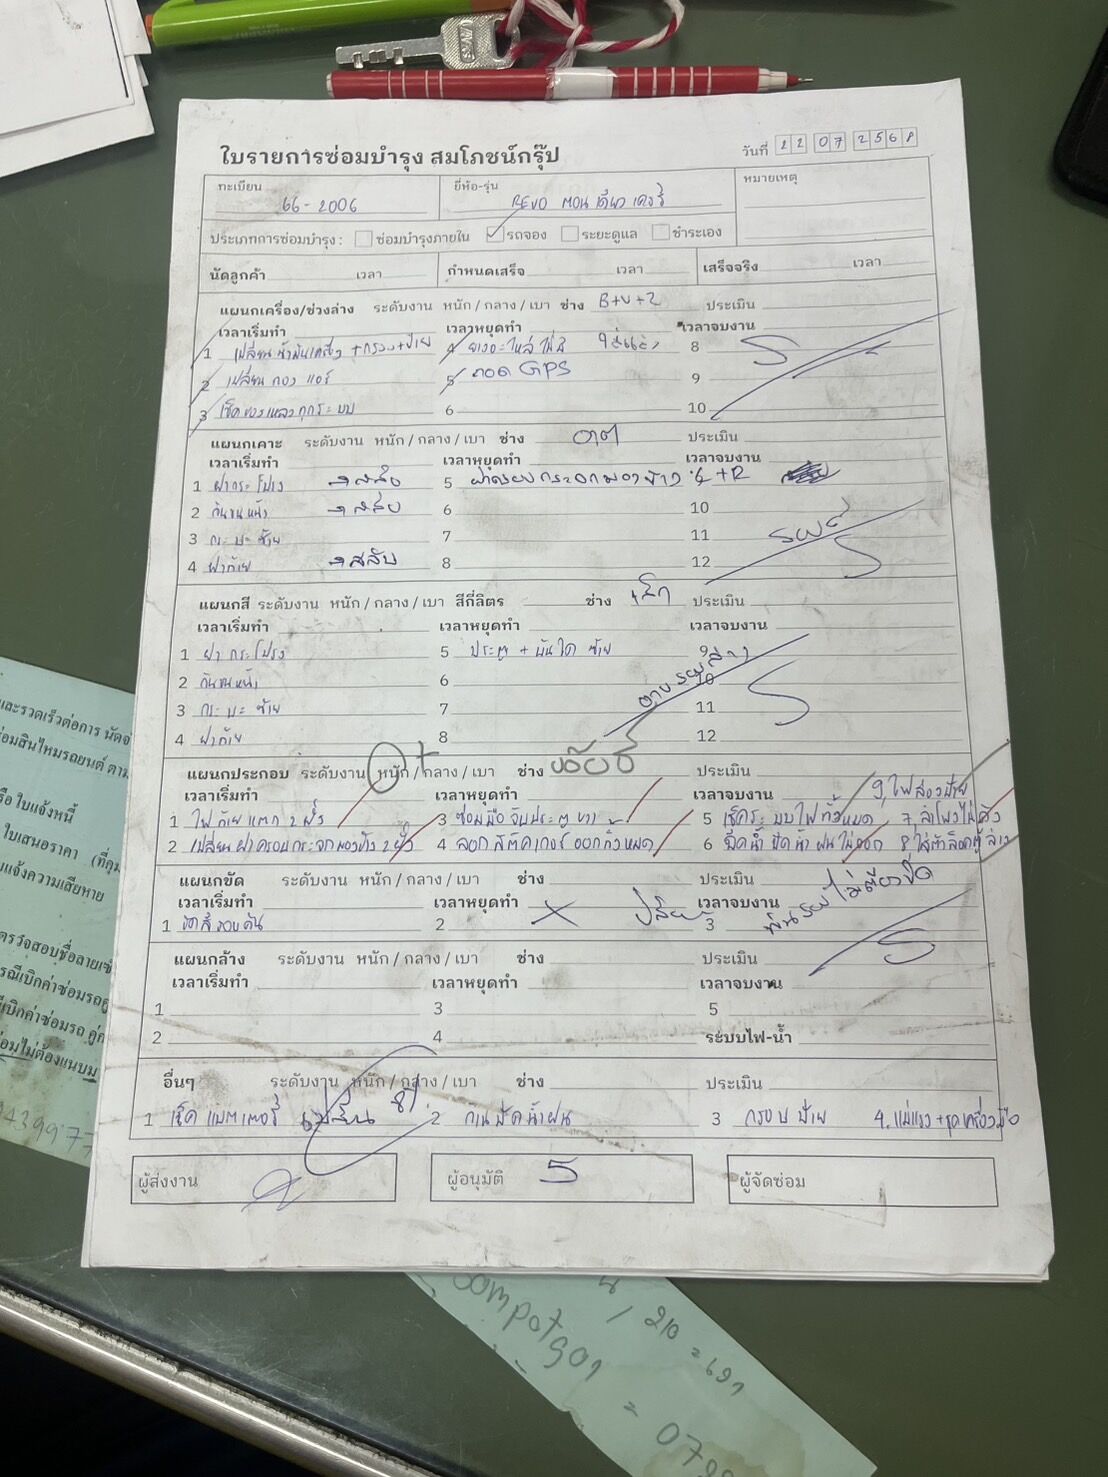 ใบรายการซ่อมบำรุง สมโภชน์กรุ๊ป
วันที่ 22 07 2568
ทะเบียน 66-2006
ยี่ห้อ-รุ่น REVO ตอนเดียว
หมายเหตุ
ประเภทการซ่อมบำรุง : ซ่อมบำรุงภายใน รถจอง ระยะดูแล ชำระเอง
นัดลูกค้า เวลา กำหนดเสร็จ เวลา เสร็จจริง เวลา
แผนกเครื่อง/ช่วงล่าง ระดับงาน หนัก / กลาง / เบา ช่าง B+V+2 ประเมิน
เวลาเริ่มทำ เวลาหยุดทำ เวลาจบงาน
1 เปลี่ยนน้ำมันเครื่อง +กรอง+ป้าย 4 ยางอะไหล่ไม่มี 8
2 เปลี่ยนกรองแอร์ 5 ถอด GPS 9
3 เช็คของเหลวทุกระบบ 6 10
แผนกเคาะ ระดับงาน หนัก / กลาง / เบา ช่าง ประเมิน
เวลาเริ่มทำ เวลาหยุดทำ เวลาจบงาน
1 ฝากระโปรง →สลับ 5 ฝาครอบกระจกมองข้าง L+R
2 กันชนหน้า →สลับ 6 10
3 กระบะซ้าย 7 11
4 ฝาท้าย →สลับ 8 12
แผนกสี ระดับงาน หนัก / กลาง / เบา สีกี่ลิตร ช่าง เล็ก ประเมิน
เวลาเริ่มทำ เวลาหยุดทำ เวลาจบงาน
1 ฝากระโปรง 5 ประตู + บันได ซ้าย 9
2 กันชนหน้า 6 10
3 กระบะซ้าย 7 11
4 ฝาท้าย 8 12
แผนกประกอบ ระดับงาน หนัก / กลาง / เบา ช่าง ประเมิน
เวลาเริ่มทำ เวลาหยุดทำ เวลาจบงาน 9 ไฟส่องป้าย
1 ไฟท้ายแตก 2 ฝั่ง 3 ซ่อมมือจับประตู ขวา 5 เช็คระบบไฟทั้งหมด 7 ลำโพงไม่ดัง
2 เปลี่ยนฝาครอบกระจกมองข้าง 2 ฝั่ง 4 ลอกสติคเกอร์ออกทั้งหมด 6 ฉีดน้ำ ปัดน้ำฝนไม่ออก
แผนกขัด ระดับงาน หนัก / กลาง / เบา ช่าง ประเมิน
เวลาเริ่มทำ เวลาหยุดทำ เวลาจบงาน
1 ขัดสีรอบคัน 2 3
แผนกล้าง ระดับงาน หนัก / กลาง / เบา ช่าง ประเมิน
เวลาเริ่มทำ เวลาหยุดทำ เวลาจบงาน
1 3 5
2 4 ระบบไฟ-น้ำ
อื่นๆ ระดับงาน หนัก / กลาง / เบา ช่าง ประเมิน
1 เช็คแบตเตอรี่ เปลี่ยน 2 ก้านปัดน้ำฝน 3 กรอบป้าย 4. แม่แรง+ชุดเครื่องมือ
ผู้ส่งงาน ผู้อนุมัติ ผู้จัดซ่อม
และรวดเร็วต่อการ นัด
ซ่อมสินไหมรถยนต์ ตาม
รือ ใบแจ้งหนี้
ใบเสนอราคา
บแจ้งความเสียหาย
ตรวจสอบชื่อลายเซ็
รณีเบิกค่าซ่อมรถคู่
เบิกค่าซ่อมรถ คู่
ซ่อมไม่ต้องแนบม
/ 210 = 691